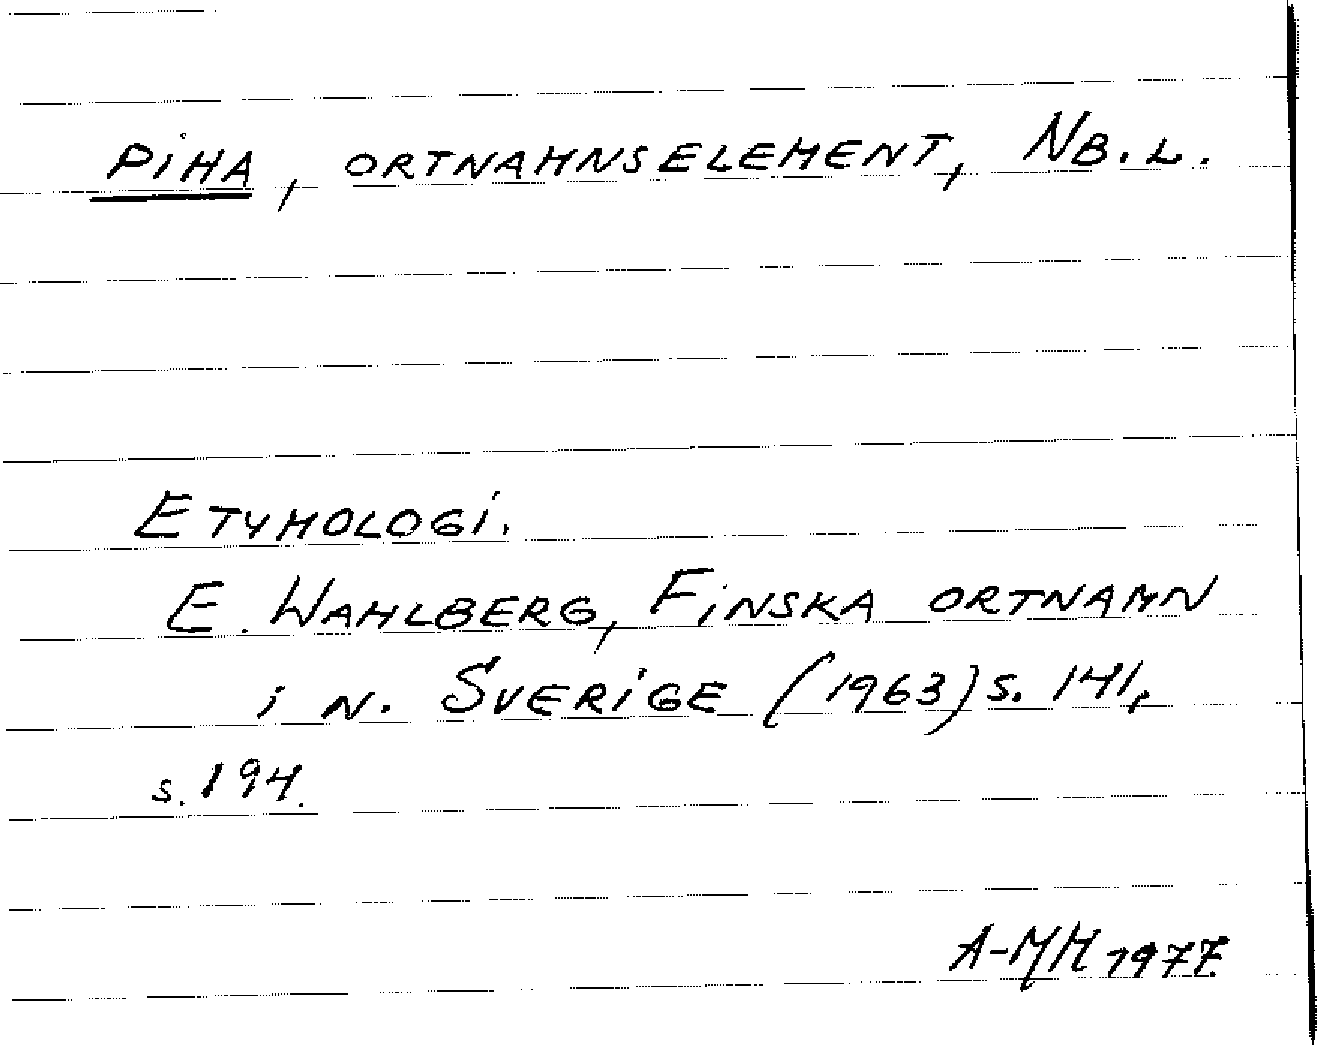 PiHA, ORTNAMNSELEMENT, NB.L.
ETYMOLOGi.
E. WAHLBERG, FiNSKA ORTNAMN
i N. SVERiGE (1963) S. 141,
S. 194.
A-MM 1977